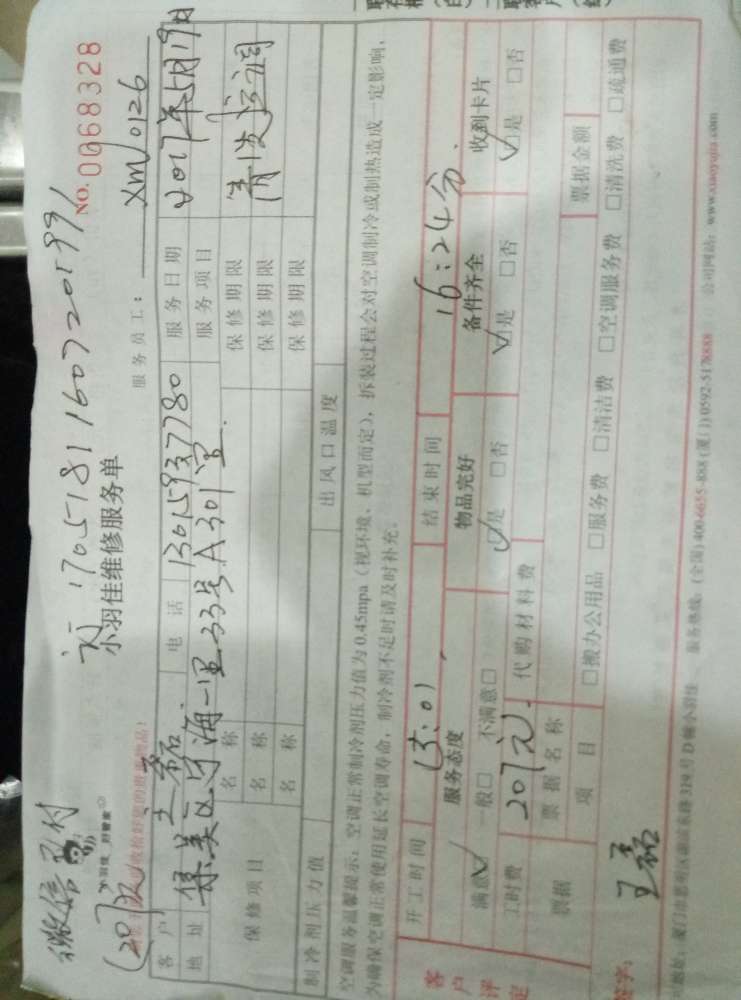 微信支付
1705181160720599
NO. 0068328
(207元)
小羽佳维修服务单
服务员工：
XM0126
客户
王磊
电话
13015937780
服务日期
2017年5月19日
地址
集美区宁海一里33号A301室
服务项目
清洗空调
保修项目
名称
保修期限
名称
保修期限
名称
保修期限
制冷剂压力值
出风口温度
空调服务温馨提示：空调正常制冷剂压力值为 0.45mpa（视环境、机型而定），拆装过程会对空调制冷或制热造成一定影响，
为确保空调正常使用延长空调寿命，制冷剂不足时请及时补充。
开工时间
15:01
结束时间
16:24分
客户评定
服务态度
物品完好
备件齐全
收到卡片
满意
一般□
不满意□
是
□否
是
□否
是
□否
工时费
207元
代购材料费
票据
票据名称
票据金额
项目
□搬办公用品
□服务费
□清洁费
□空调服务费
□清洗费
□疏通费
签字：
王磊
服务热线：(全国)400-6655-888 (厦门)0592-5178888
公司网站：www.xiaoyujia.com